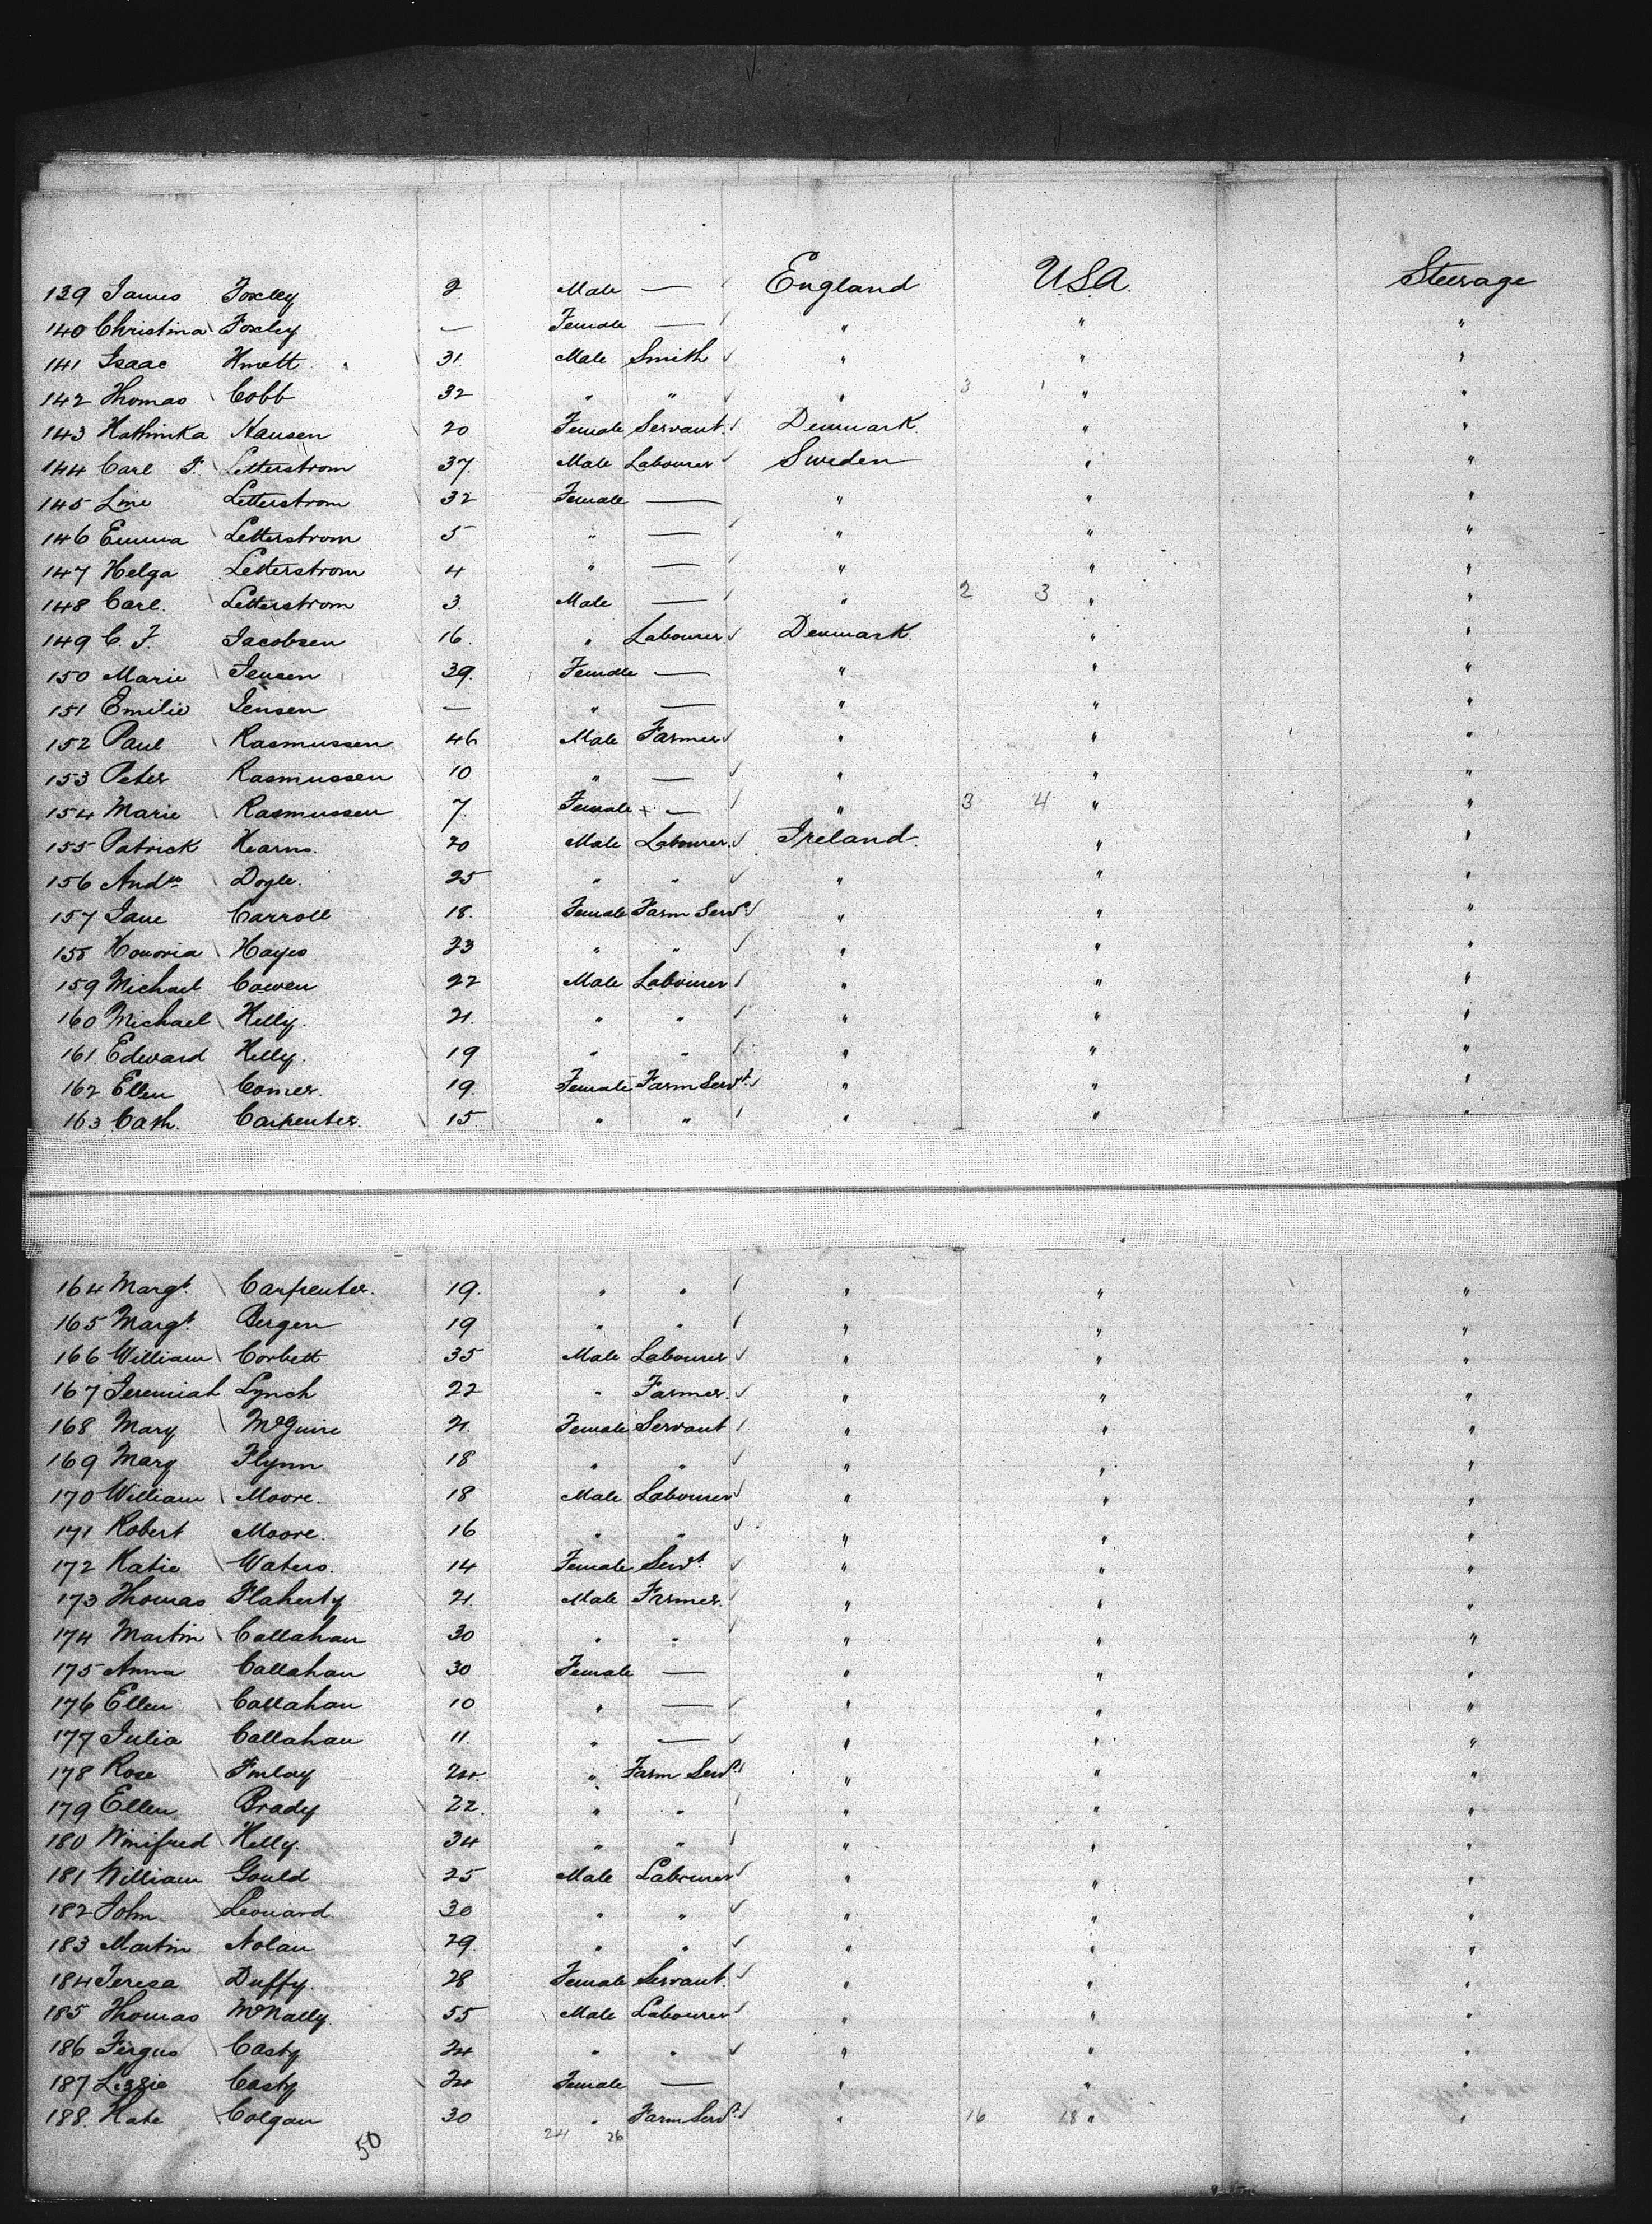 139 James Foxley 2 Male — England U.S.A. Steerage
140 Christina Foxley — Female — " " "
141 Isaac 31 Male Smith " " "
142 Thomas Cobb 32 " " " 3 1 " "
143 Kathinka Hansen 20 Female Servant Denmark " "
144 Carl F. Letterstrom 37 Male Labourer Sweden " "
145 Line Letterstrom 32 Female — " " "
146 Emma Letterstrom 5 " — " " "
147 Helga Letterstrom 4 " — " " "
148 Carl Letterstrom 3 Male — " 2 3 " "
149 C. F. Jacobsen 16 " Labourer Denmark " "
150 Marie Jensen 39 Female — " " "
151 Emilie Jensen — " — " " "
152 Paul Rasmussen 46 Male Farmer " " "
153 Peter Rasmussen 10 " — " " "
154 Marie Rasmussen 7 Female — " 3 4 " "
155 Patrick Kearns 20 Male Labourer Ireland " "
156 Andw Doyle 25 " " " " "
157 Jane Carroll 18 Female Farm Servt " " "
158 Honoria Hayes 23 " " " " "
159 Michael Cowen 22 Male Labourer " " "
160 Michael Kelly 21 " " " " "
161 Edward Kelly 19 " " " " "
162 Ellen Comer 19 Female Farm Servt " " "
163 Cath. Carpenter 15 " " " " "
164 Margt Carpenter 19 " " " " "
165 Margt Bergen 19 " " " " "
166 William Corbett 35 Male Labourer " " "
167 Jeremiah Lynch 22 " Farmer " " "
168 Mary McGuire 21 Female Servant " " "
169 Mary Flynn 18 " " " " "
170 William Moore 18 Male Labourer " " "
171 Robert Moore 16 " " " " "
172 Katie Waters 14 Female Servt " " "
173 Thomas Flaherty 21 Male Farmer " " "
174 Martin Callahan 30 " " " " "
175 Anna Callahan 30 Female — " " "
176 Ellen Callahan 10 " — " " "
177 Julia Callahan 11 " — " " "
178 Rose Finlay 24 " Farm Servt " " "
179 Ellen Brady 22 " " " " "
180 Winifred Kelly 34 " " " " "
181 William Gould 25 Male Labourer " " "
182 John Leonard 30 " " " " "
183 Martin Nolan 29 " " " " "
184 Teresa Duffy 28 Female Servant " " "
185 Thomas McNally 55 Male Labourer " " "
186 Fergus Casty 24 " " " " "
187 Lizzie Casty 24 Female — " " "
188 Kate Colgan 30 " Farm Servt " 16 18 " "
50 24 26